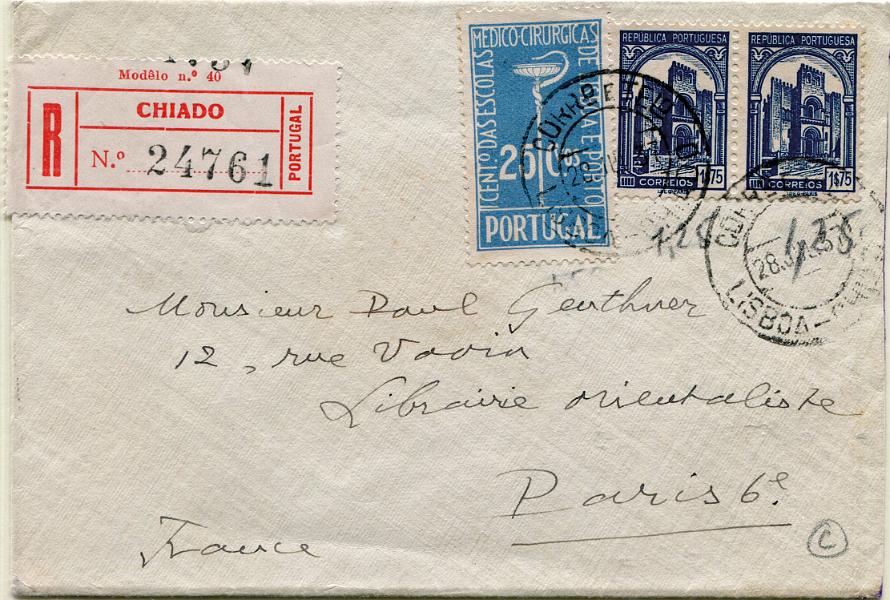 Modêlo n.º 40
R
CHIADO
N.º 24761
PORTUGAL
CENT.º DAS ESCOLAS
MÉDICO-CIRÚRGICAS DE
A E PORTO
25
PORTUGAL
REPÚBLICA PORTUGUESA
CORREIOS
1$75
REPÚBLICA PORTUGUESA
CORREIOS
1$75
28
LISBOA
1,25
1,25
Monsieur Paul Geuthner
12, rue Vavin
Librairie orientaliste
Paris 6e
France
C